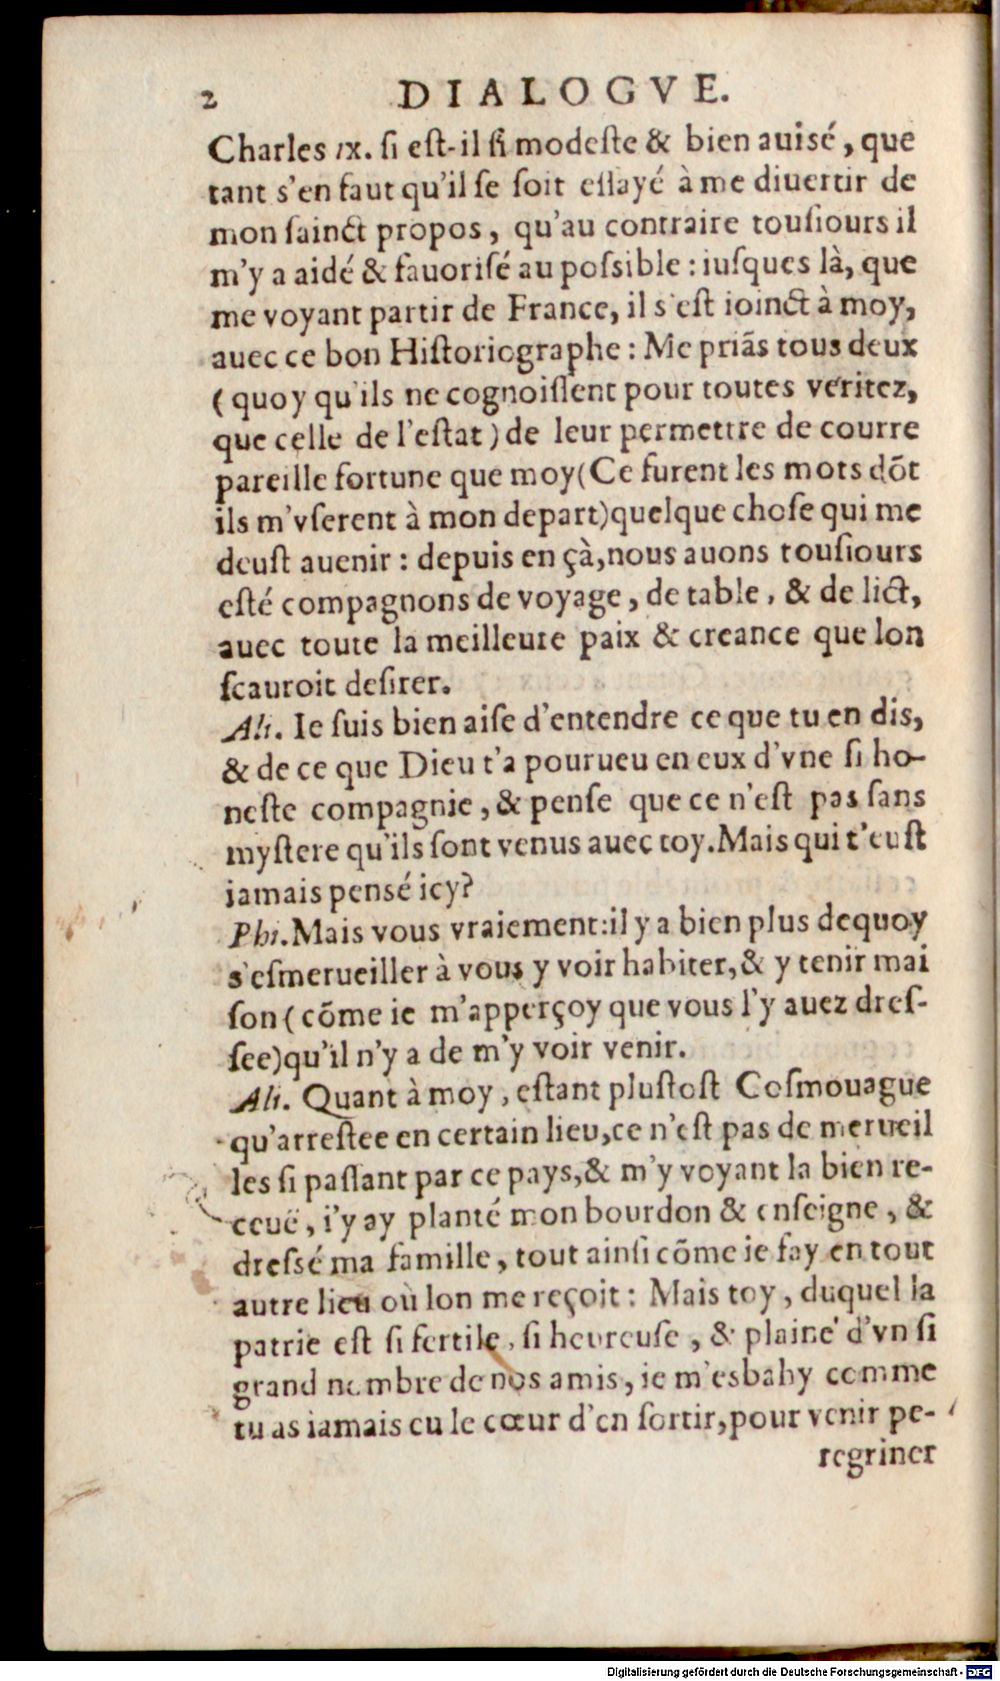 2 DIALOGVE.
Charles IX. ſi eſt-il ſi modeſte & bien auisé, que
tant s'en faut qu'il ſe ſoit eſſayé à me diuertir de
mon ſainct propos, qu'au contraire touſiours il
m'y a aidé & fauoriſé au poſsible : iuſques là, que
me voyant partir de France, il s'eſt ioinct à moy,
auec ce bon Hiſtoriographe : Me priãs tous deux
(quoy qu'ils ne cognoiſſent pour toutes veritez,
que celle de l'eſtat) de leur permettre de courre
pareille fortune que moy(Ce furent les mots dõt
ils m'vſerent à mon depart)quelque choſe qui me
deuſt auenir : depuis en çà,nous auons touſiours
eſté compagnons de voyage, de table, & de lict,
auec toute la meilleure paix & creance que lon
ſcauroit deſirer.
Ali. Ie ſuis bien aiſe d'entendre ce que tu en dis,
& de ce que Dieu t'a pourueu en eux d'vne ſi ho-
neſte compagnie, & penſe que ce n'eſt pas ſans
myſtere qu'ils ſont venus auec toy.Mais qui t'euſt
iamais pensé icy?
Phi.Mais vous vraiement:il y a bien plus dequoy
s'eſmerueiller à vous y voir habiter,& y tenir mai
ſon ( cõme ie m'apperçoy que vous l'y auez dreſ-
ſee)qu'il n'y a de m'y voir venir.
Ali. Quant à moy, eſtant pluſtoſt Coſmouague
qu'arreſtee en certain lieu,ce n'eſt pas de merueil
les ſi paſſant par ce pays,& m'y voyant la bien re-
ceuë, i'y ay planté mon bourdon & enſeigne, &
dreſsé ma famille, tout ainſi cõme ie fay en tout
autre lieu où lon me reçoit : Mais toy, duquel la
patrie eſt ſi fertile, ſi heureuſe, & plaine d'vn ſi
grand nombre de nos amis, ie m'esbahy comme
tu as iamais eu le cœur d'en ſortir,pour venir pe-
regriner
Digitalisierung gefördert durch die Deutsche Forschungsgemeinschaft - DFG